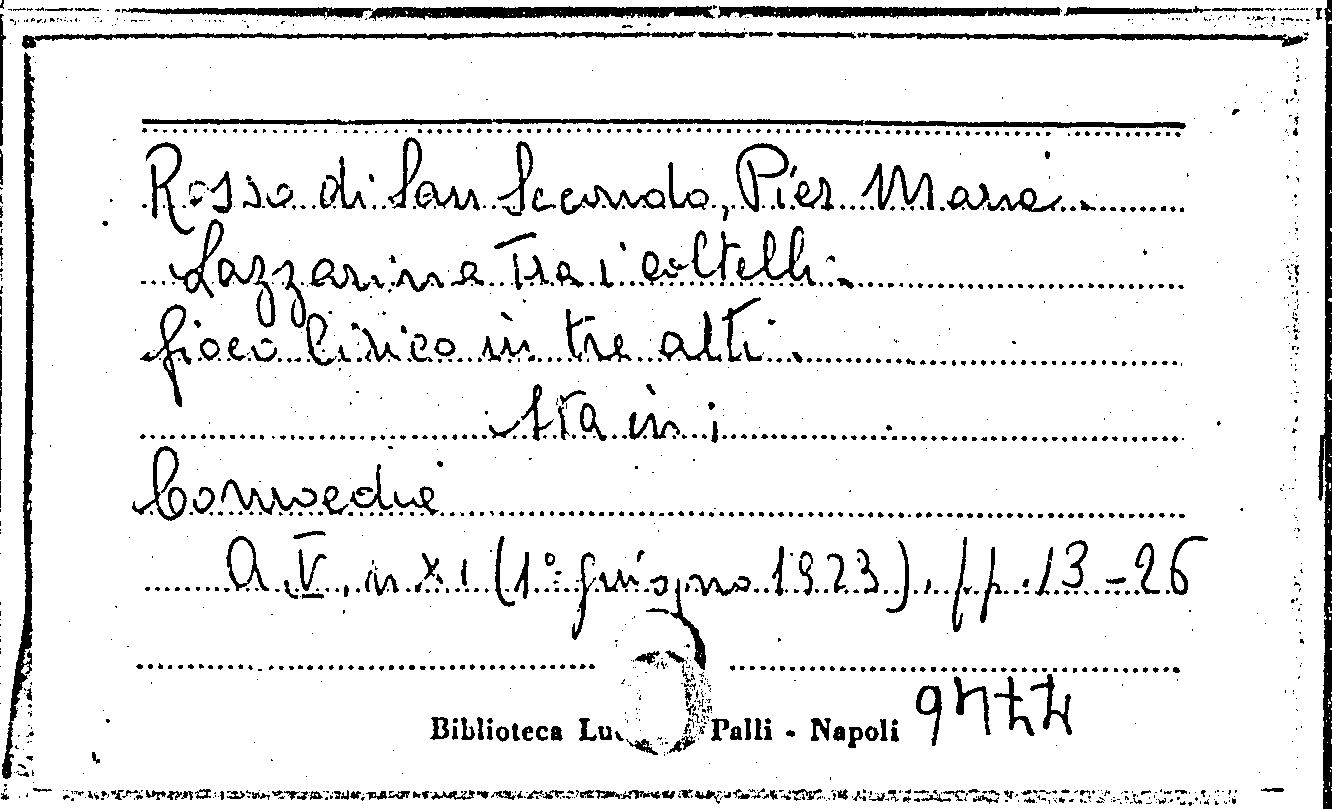 Rosso di San Secondo, Pier Maria.
Lazzarina tra i coltelli.
Gioco lirico in tre atti.
Sta in:
Comoedia
A. V, n. XI (1° giugno 1923), pp. 13-26
Biblioteca Lu Palli - Napoli